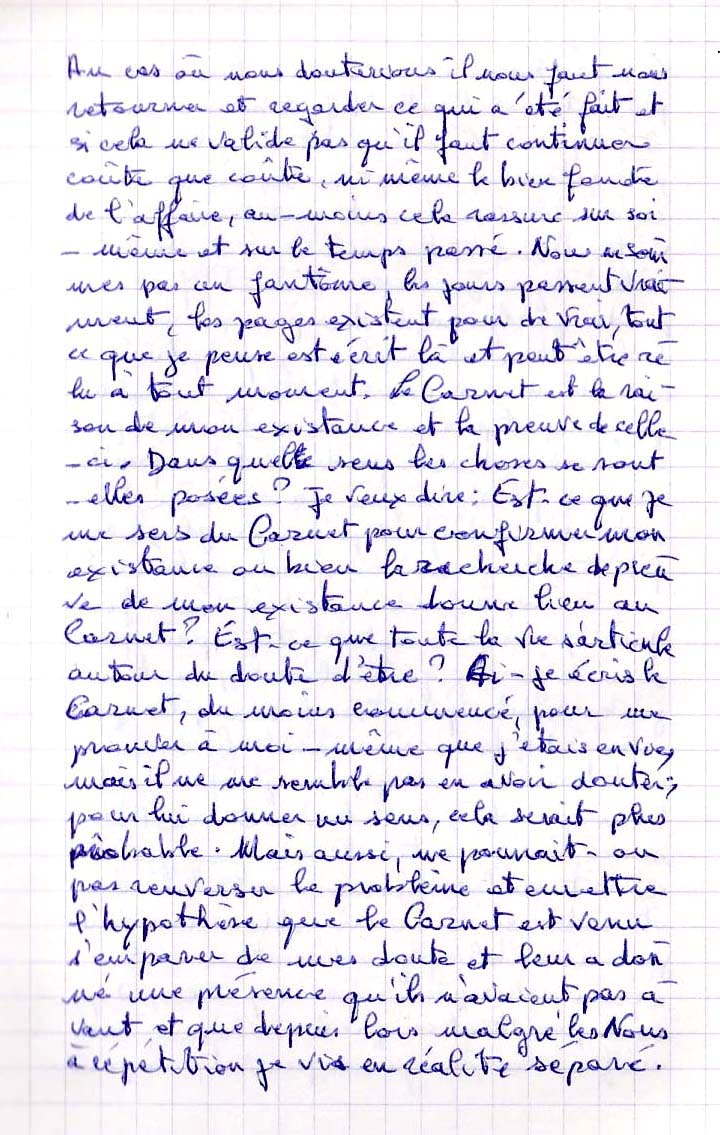 Au cas où nous douterions il nous faut nous
retourner et regarder ce qui a été fait et
si cela ne valide pas qu'il faut continuer
coûte que coûte, ni même le bien fondé
de l'affaire, au-moins cela rassure sur soi
-même et sur le temps passé. Nous ne som
mes pas un fantôme, les jours passent vrai
ment, les pages existent pour de vrai, tout
ce que je pense est écrit là et peut être re
lu à tout moment. Le Carnet est la rai-
son de mon existence et la preuve de celle
-ci. Dans quelle sens les choses se sont
-elles posées? Je veux dire: Est-ce que je
me sers du Carnet pour confirmer mon
existence ou bien la recherche de preu
ve de mon existence donne lieu au
Carnet? Est-ce que toute la vie s'articule
autour du doute d'être? Ai-je écris le
Carnet, du moins commencé, pour me
prouver à moi-même que j'étais en vie,
mais il ne me semble pas en avoir douter;
pour lui donner un sens, cela serait plus
probable. Mais aussi, ne pourrait-on
pas renverser le problème et émettre
l'hypothèse que le Carnet est venu
s'emparer de mes doute et leur a don
né une présence qu'ils n'avaient pas a
vant et que depuis lors malgré les Nous
à répétition je vis en réalité séparé.